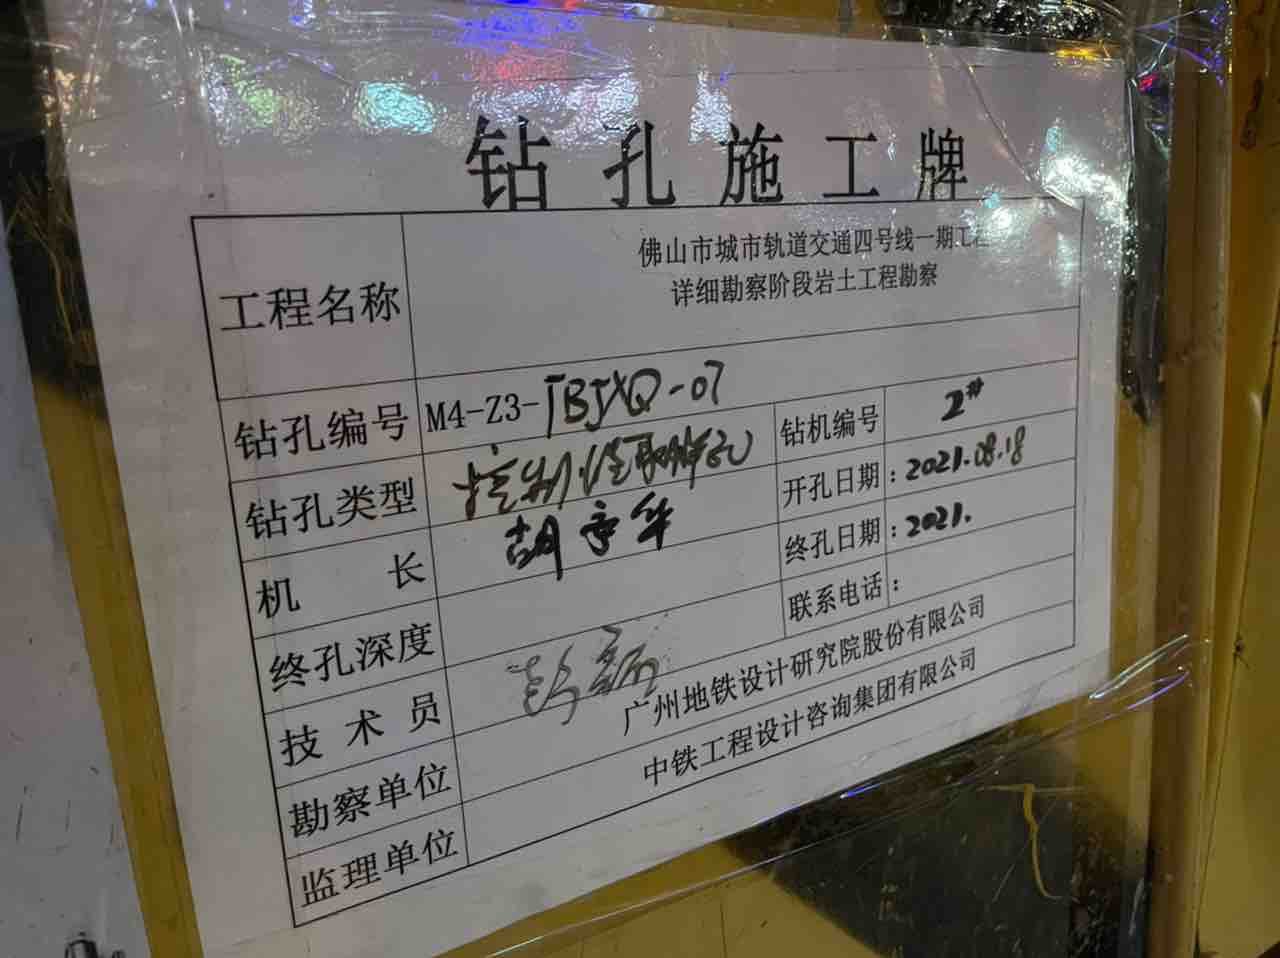 钻孔施工牌
工程名称 佛山市城市轨道交通四号线一期工程
详细勘察阶段岩土工程勘察
钻孔编号 M4-Z3-JBJXQ-07 钻机编号 2#
钻孔类型 控制性取样孔 开孔日期：2021.08.18
机长 胡 华 终孔日期：2021.
终孔深度 联系电话：
技术员 彭
勘察单位 广州地铁设计研究院股份有限公司
监理单位 中铁工程设计咨询集团有限公司